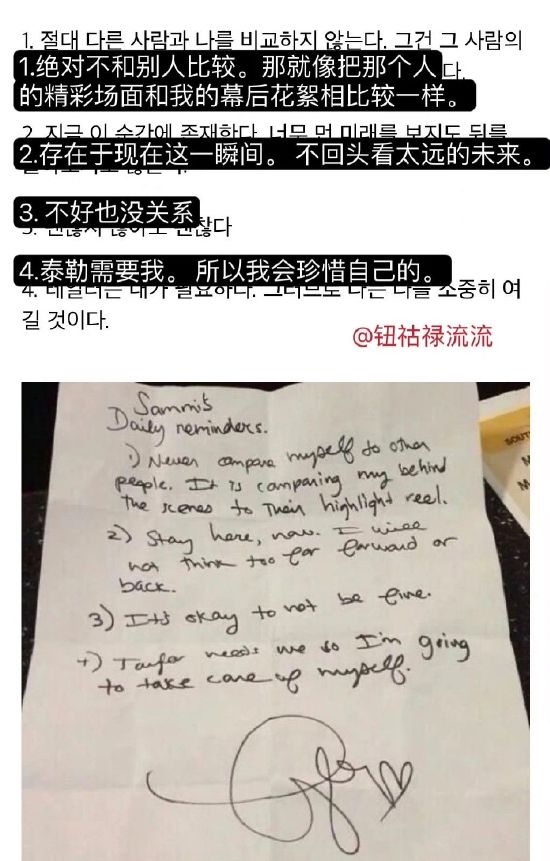 1. 절대 다른 사람과 나를 비교하지 않는다. 그건 그 사람의
1.绝对不和别人比较。那就像把那个人 다.
的精彩场面和我的幕后花絮相比较一样。
2. 지금 이 순간에 존재한다. 너무 먼 미래를 보지도 뒤를
2.存在于现在这一瞬间。 不回头看太远的未来。
3. 不好也没关系
3. 괜찮지 않아도 괜찮다
4.泰勒需要我。 所以我会珍惜自己的。
4. 테일러는 내가 필요하다. 그러므로 나는 나를 소중히 여
길 것이다.
@钮祜禄流流
Sammi's
Daily reminders.
1) Never compare myself to other
people. It is comparing my behind
the scenes to their highlight reel.
2) Stay here, now. I will
not think too far forward or
back.
3) It's okay to not be fine.
4) Taylor needs me so I'm going
to take care of myself.
SOUT